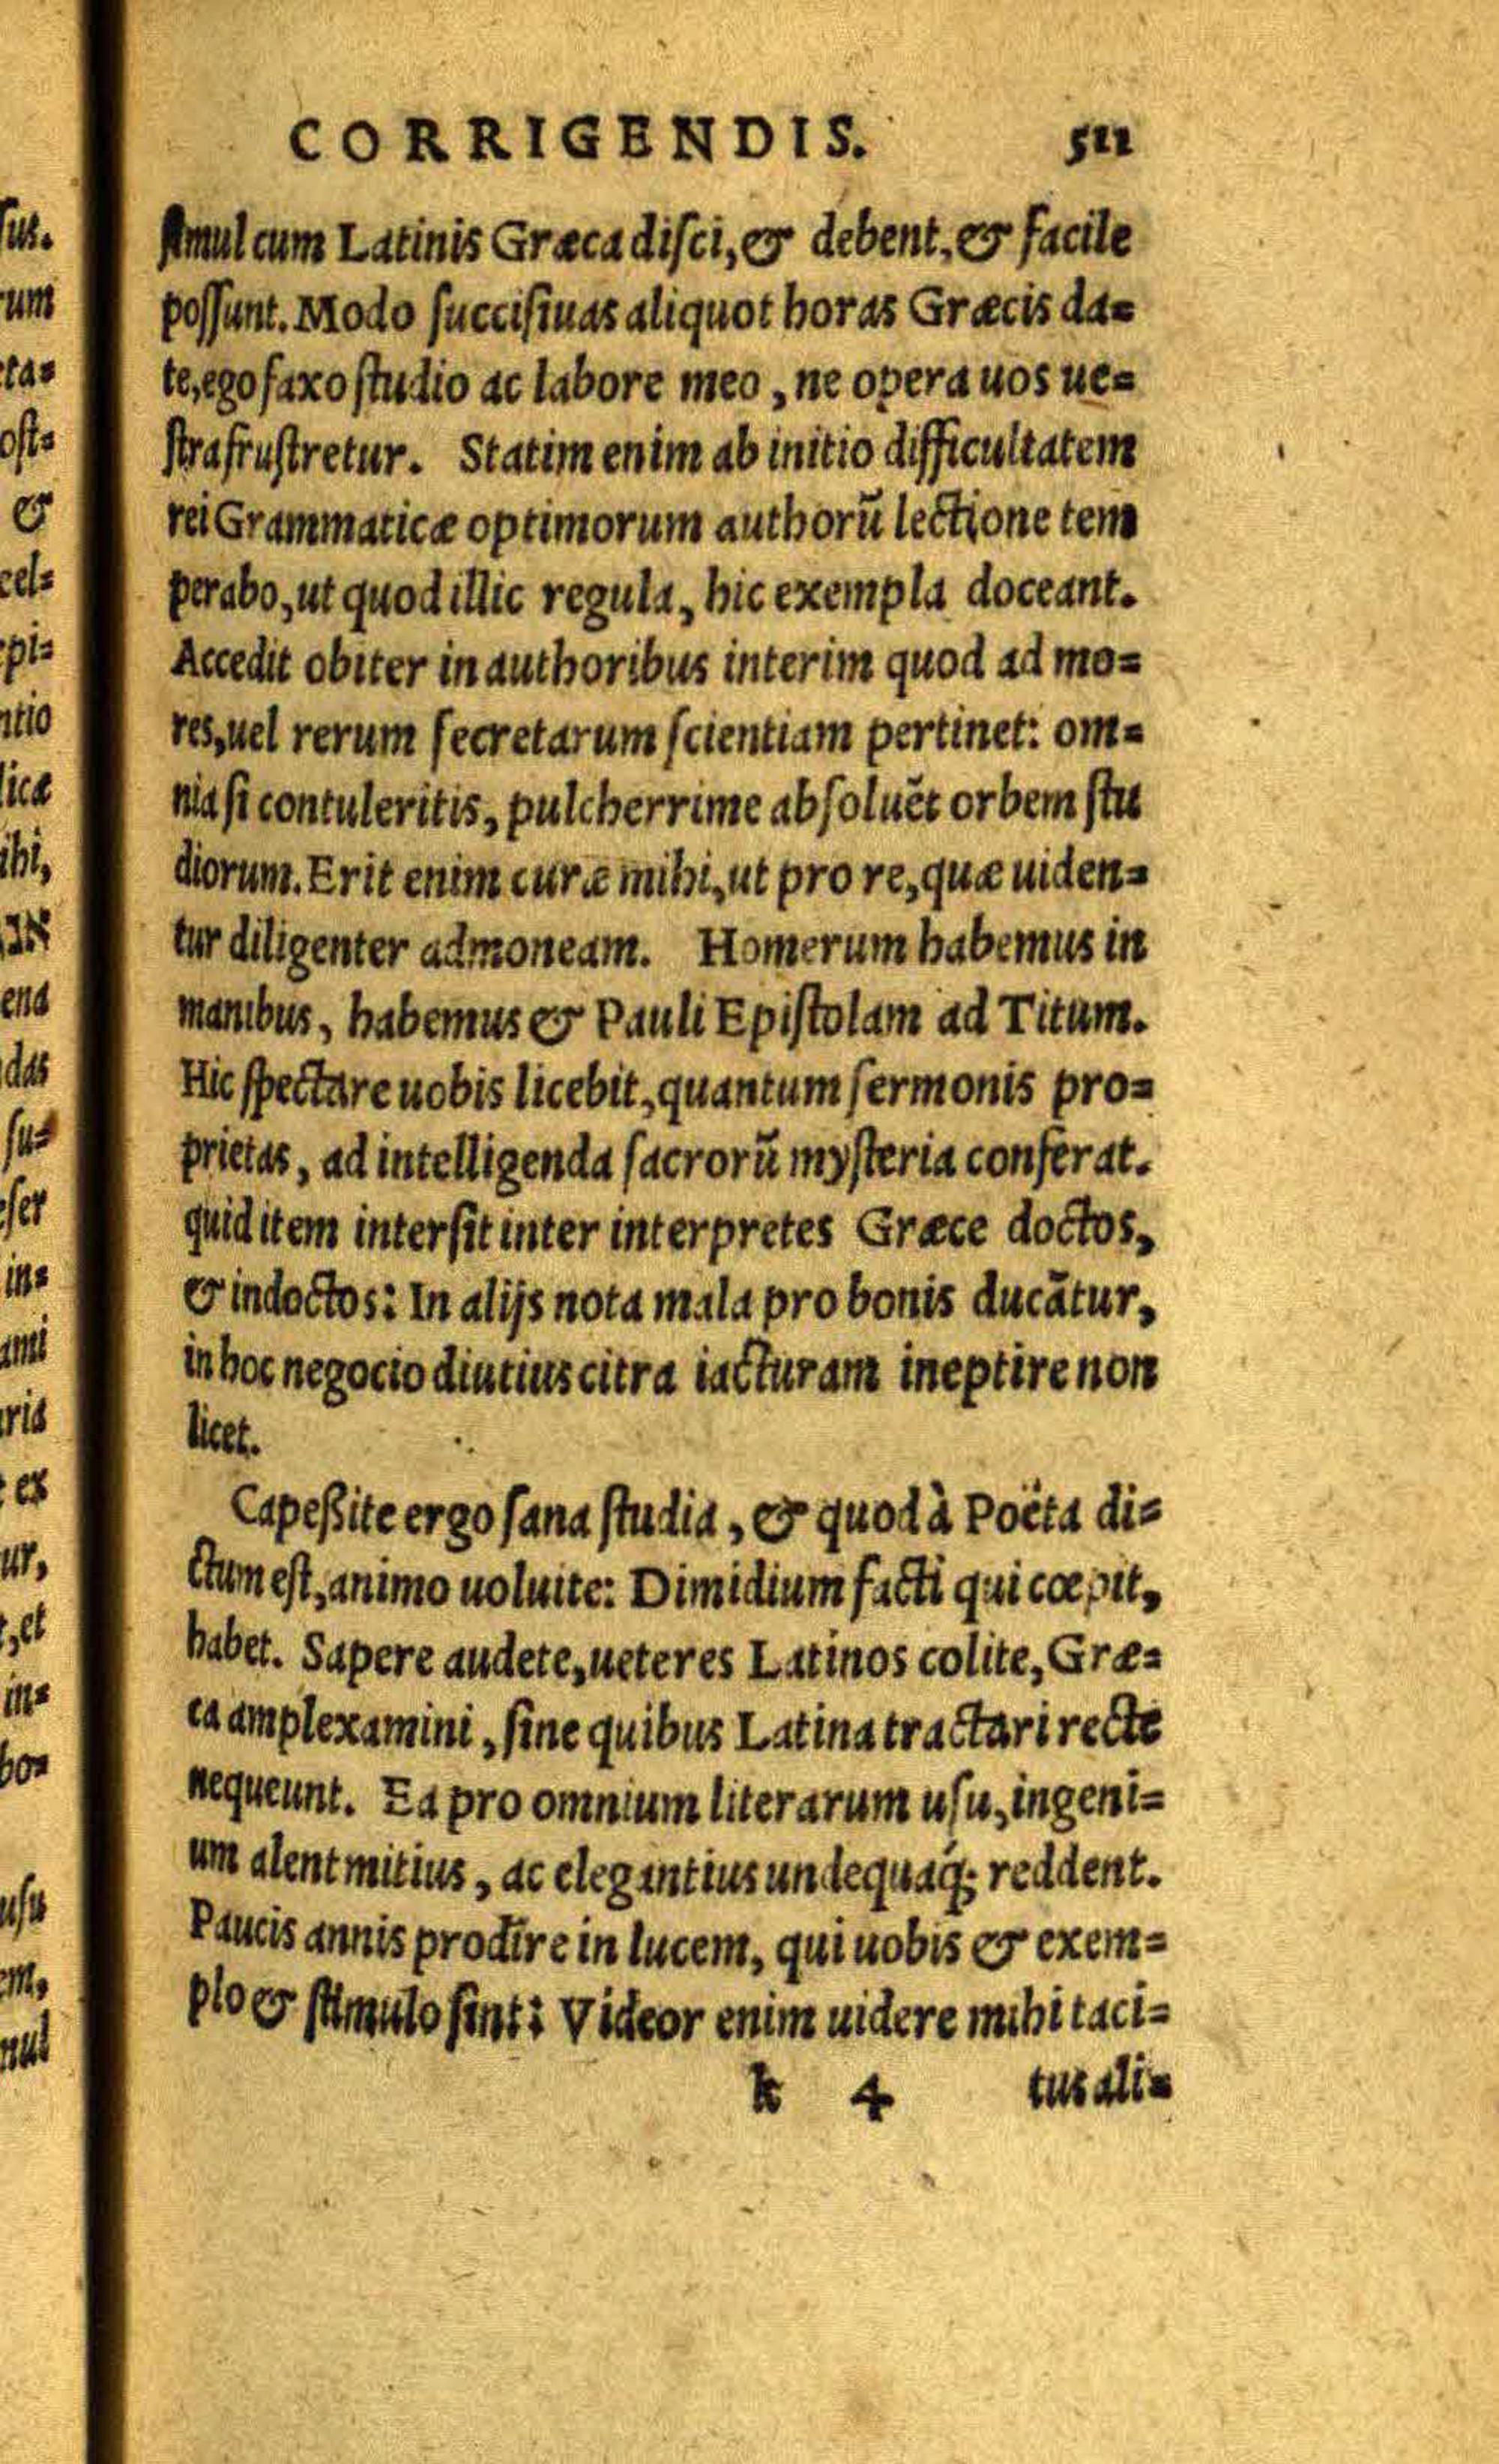 CORRIGENDIS. 511
simul cum Latinis Græca disci, & debent, & facile
possunt. Modo succisiuas aliquot horas Græcis da=
te, ego faxo studio ac labore meo, ne opera uos ue=
stra frustretur. Statim enim ab initio difficultatem
rei Grammaticæ optimorum authorũ lectione tem
perabo, ut quod illic regula, hic exempla doceant.
Accedit obiter in authoribus interim quod ad mo=
res, uel rerum secretarum scientiam pertinet: om=
nia si contuleritis, pulcherrime absoluẽt orbem stu
diorum. Erit enim curæ mihi, ut pro re, quæ uiden=
tur diligenter admoneam. Homerum habemus in
manibus, habemus & Pauli Epistolam ad Titum.
Hic spectare uobis licebit, quantum sermonis pro=
prietas, ad intelligenda sacrorũ mysteria conferat.
quid item intersit inter interpretes Græce doctos,
& indoctos: In alijs nota mala pro bonis ducãtur,
in hoc negocio diutius citra iacturam ineptire non
licet.
Capeßite ergo sana studia, & quod à Poëta di=
ctum est, animo uoluite: Dimidium facti qui cœpit,
habet. Sapere audete, ueteres Latinos colite, Græ=
ca amplexamini, sine quibus Latina tractari recte
nequeunt. Ea pro omnium literarum usu, ingeni=
um alent mitius, ac elegantius undequáq; reddent.
Paucis annis prodire in lucem, qui uobis & exem=
plo & stimulo sint: Videor enim uidere mihi taci=
k 4 tus ali=